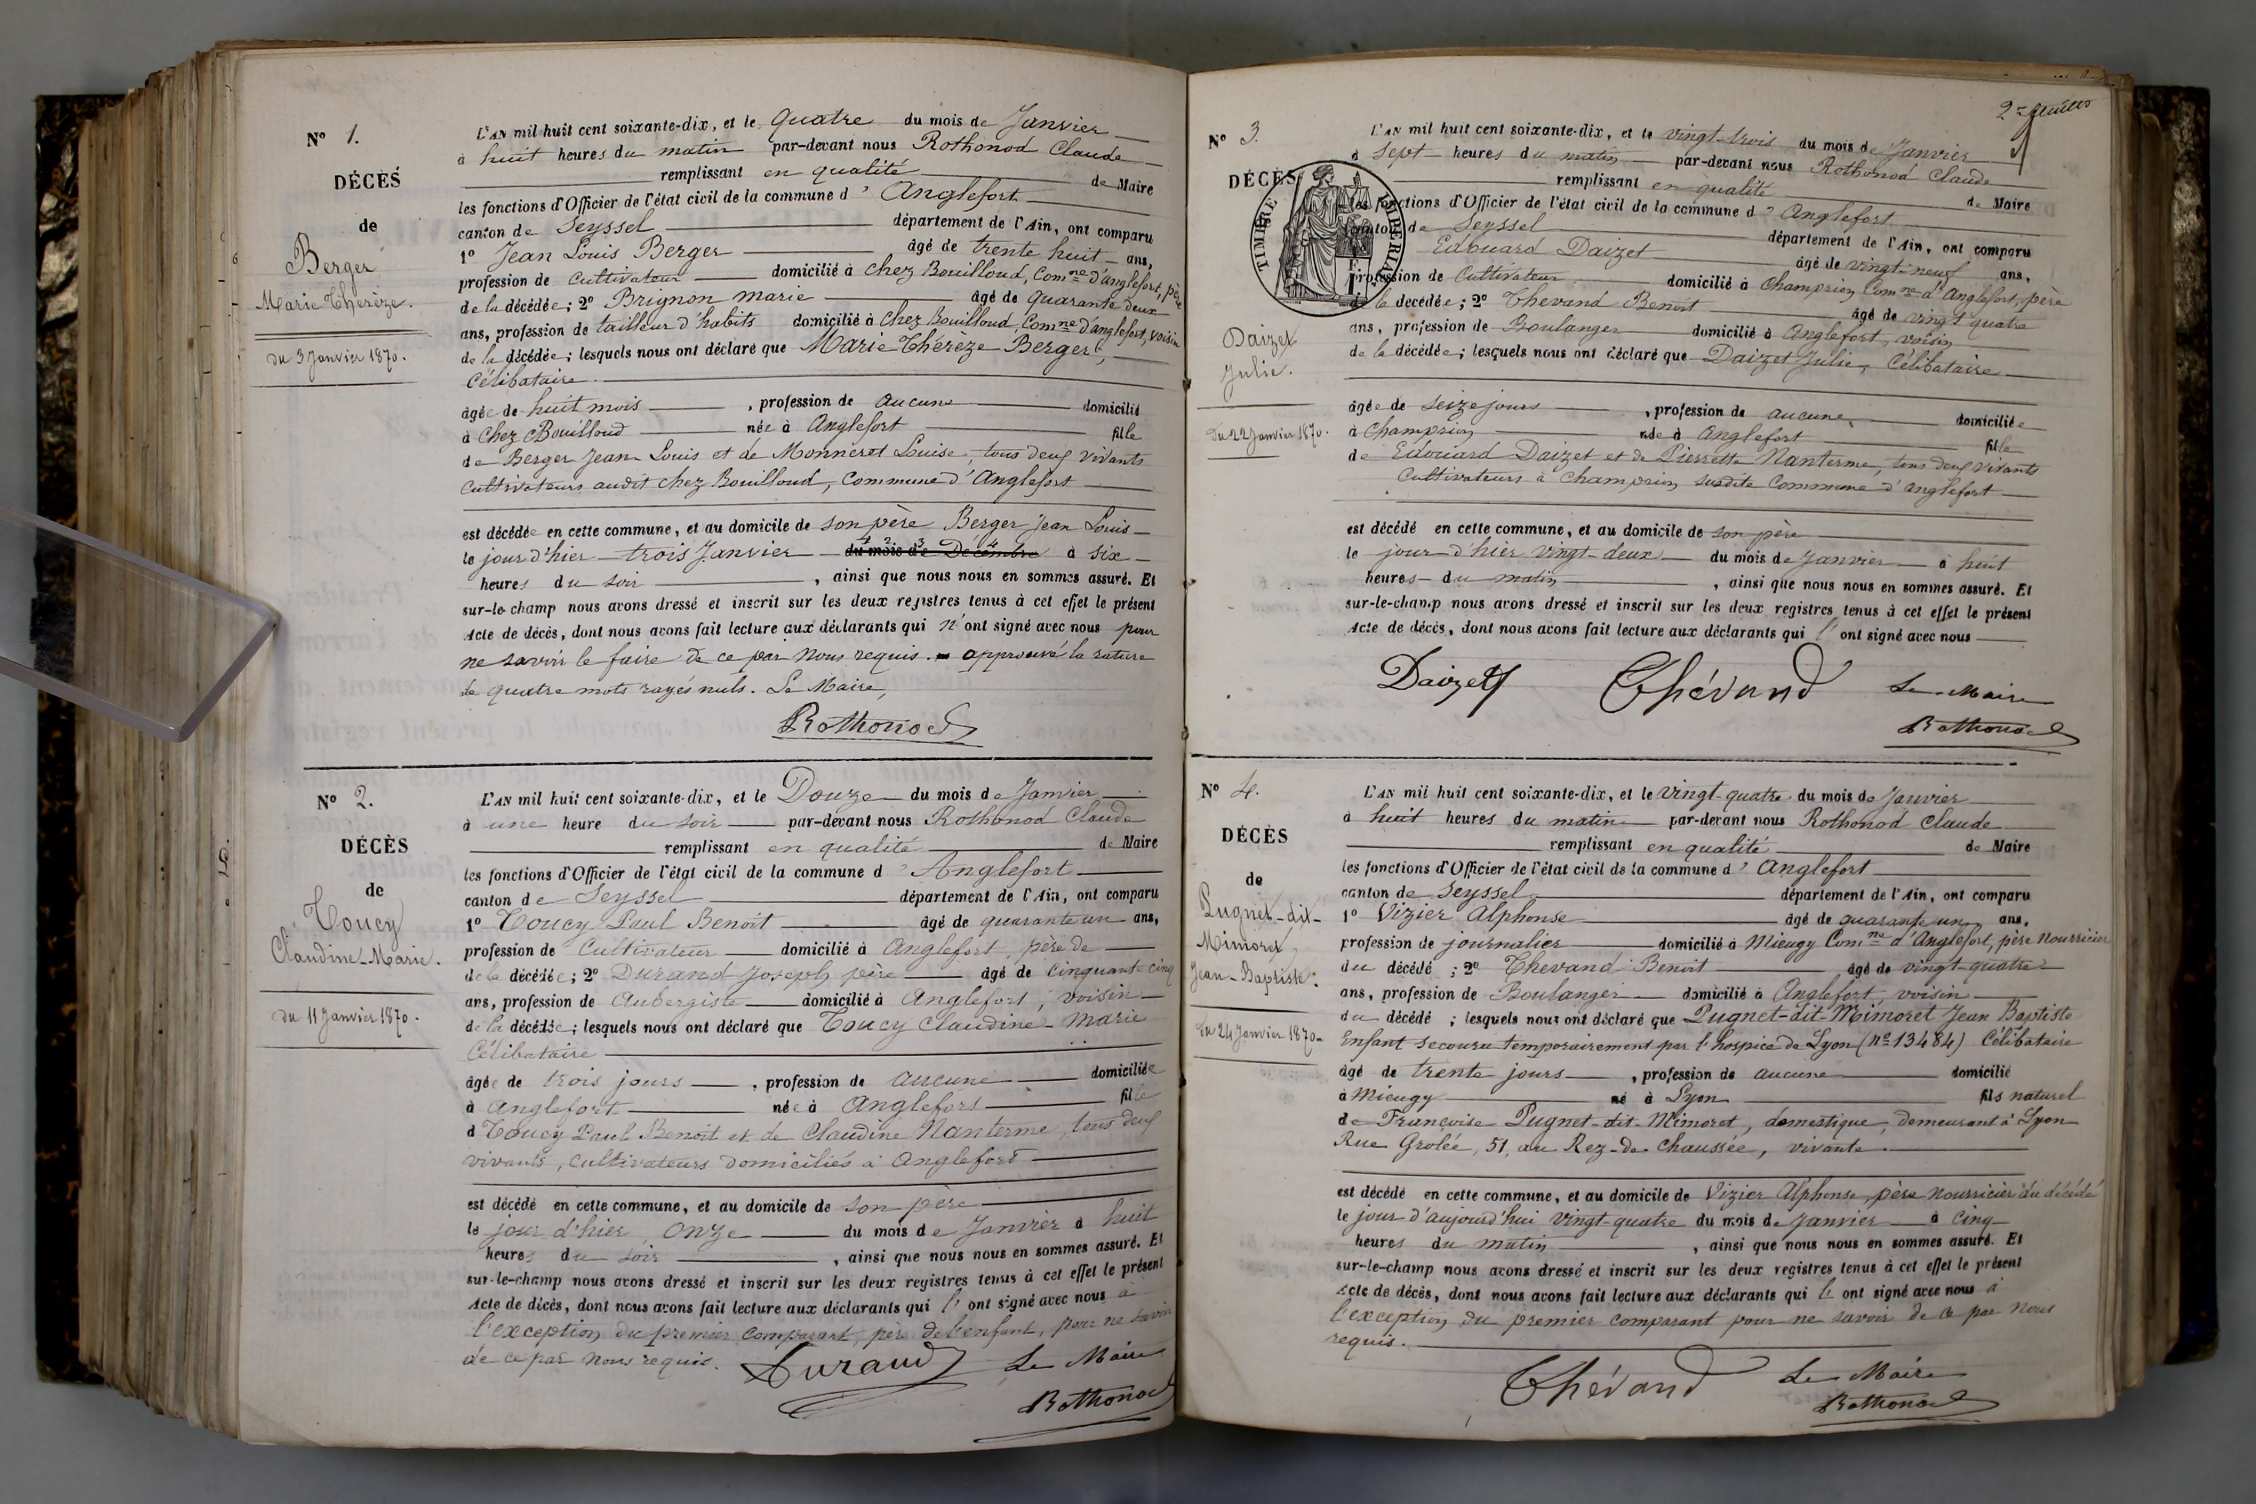 N° 1.
DÉCÈS
de
Berger
Marie Thérèze.
du 3 Janvier 1870.
L'AN mil huit cent soixante-dix, et le quatre du mois de Janvier
à huit heures du matin par-devant nous Rothonod Claude
remplissant en qualité de Maire
les fonctions d'Officier de l'état civil de la commune d' Anglefort
canton de Seyssel département de l'Ain, ont comparu
1° Jean Louis Berger âgé de trente huit ans,
profession de Cultivateur domicilié à chez Bouilloud, Comne d'anglefort, père
de la décédée; 2° Brignon marie âgé de quarante deux
ans, profession de tailleur d'habits domicilié à chez Bouilloud, Comne d'anglefort, voisin
de la décédée; lesquels nous ont déclaré que Marie Thérèze Berger,
Célibataire.
âgée de huit mois, profession de aucune domicilié
à chez Bouilloud née à Anglefort fille
de Berger Jean Louis et de Monneret Louise, tous deux vivants
Cultivateurs audit chez Bouilloud, Commune d'Anglefort
est décédée en cette commune, et au domicile de son père Berger Jean Louis
le jour d'hier trois Janvier du mois de Décembre à six
heures du soir, ainsi que nous nous en sommes assuré. Et
sur-le-champ nous avons dressé et inscrit sur les deux registres tenus à cet effet le présent
Acte de décès, dont nous avons fait lecture aux déclarants qui n'ont signé avec nous pour
ne savoir le faire de ce par nous requis. approuvé la rature
de quatre mots rayés nuls. Le Maire,
Rothonod
N° 2.
DÉCÈS
de
Toucy
Claudine-Marie.
du 11 Janvier 1870.
L'AN mil huit cent soixante-dix, et le Douze du mois de Janvier
à une heure du soir par-devant nous Rothonod Claude
remplissant en qualité de Maire
les fonctions d'Officier de l'état civil de la commune d' Anglefort
canton de Seyssel département de l'Ain, ont comparu
1° Toucy Paul Benoit âgé de quarante un ans,
profession de Cultivateur domicilié à Anglefort, père de
de la décédée; 2° Durand Joseph père âgé de cinquante cinq
ans, profession de Aubergiste domicilié à Anglefort, voisin
de la décédée; lesquels nous ont déclaré que Toucy Claudine-Marie
Célibataire
âgée de trois jours, profession de aucune domiciliée
à Anglefort née à Anglefort fille
d Toucy Paul Benoit et de Claudine Nanterme, tous deux
vivants, cultivateurs domiciliés à Anglefort
est décédé en cette commune, et au domicile de son père
le jour d'hier onze du mois de Janvier à huit
heures du soir, ainsi que nous nous en sommes assuré. Et
sur-le-champ nous avons dressé et inscrit sur les deux registres tenus à cet effet le présent
Acte de décès, dont nous avons fait lecture aux déclarants qui l'ont signé avec nous à
l'exception du premier comparant, père de l'enfant, pour ne savoir
de ce par nous requis. Durand Le Maire
Rothonod
2e feuillet
N° 3.
DÉCÈS
TIMBRE IMPERIAL
Daizet
Julie.
du 22 Janvier 1870.
L'AN mil huit cent soixante-dix, et le vingt-trois du mois de Janvier
à sept heures du matin par-devant nous Rothonod Claude
remplissant en qualité de Maire
les fonctions d'Officier de l'état civil de la commune d' Anglefort
canton de Seyssel département de l'Ain, ont comparu
Edouard Daizet âgé de vingt-neuf ans,
profession de Cultivateur domicilié à Champrion Comne d'Anglefort, père
de la décédée; 2° Thevand Benoit âgé de vingt quatre
ans, profession de Boulanger domicilié à Anglefort, voisin
de la décédée; lesquels nous ont déclaré que Daizet Julie, Célibataire
âgée de seize jours, profession de aucune, domiciliée
à Champrion née à Anglefort fille
de Edouard Daizet et de Pierrette Nanterme, tous deux vivants
Cultivateurs à Champrion susdite Commune d'anglefort
est décédé en cette commune, et au domicile de son père
le jour d'hier vingt-deux du mois de Janvier à huit
heures du matin, ainsi que nous nous en sommes assuré. Et
sur-le-champ nous avons dressé et inscrit sur les deux registres tenus à cet effet le présent
Acte de décès, dont nous avons fait lecture aux déclarants qui l'ont signé avec nous
Daizet Thévand Le Maire
Rothonod
N° 4.
DÉCÈS
de
Pugnet-dit-
Mimoret
Jean-Baptiste.
du 24 Janvier 1870.
L'AN mil huit cent soixante-dix, et le vingt-quatre du mois de Janvier
à huit heures du matin par-devant nous Rothonod Claude
remplissant en qualité de Maire
les fonctions d'Officier de l'état civil de la commune d' Anglefort
canton de Seyssel département de l'Ain, ont comparu
1° Vizier Alphonse âgé de quarante un ans,
profession de journalier domicilié à Mieugy Comne d'Anglefort, père Nourricier
du décédé; 2° Thevand Benoit âgé de vingt-quatre
ans, profession de Boulanger domicilié à Anglefort, voisin
du décédé; lesquels nous ont déclaré que Pugnet-dit-Mimoret Jean Baptiste
Enfant secouru temporairement par l'hospice de Lyon (no 13484) Célibataire
âgé de trente jours, profession de aucune domicilié
à Mieugy né à Lyon fils naturel
de Françoise Pugnet-dit-Mimoret, domestique, demeurant à Lyon
Rue Grolée, 51, au Rez-de-Chaussée, vivante.
est décédé en cette commune, et au domicile de Vizier Alphonse, père nourricier du décédé
le jour d'aujourd'hui vingt-quatre du mois de Janvier à cinq
heures du matin, ainsi que nous nous en sommes assuré. Et
sur-le-champ nous avons dressé et inscrit sur les deux registres tenus à cet effet le présent
Acte de décès, dont nous avons fait lecture aux déclarants qui l'ont signé avec nous à
l'exception du premier comparant pour ne savoir de ce par nous
requis.
Thévand Le Maire
Rothonod